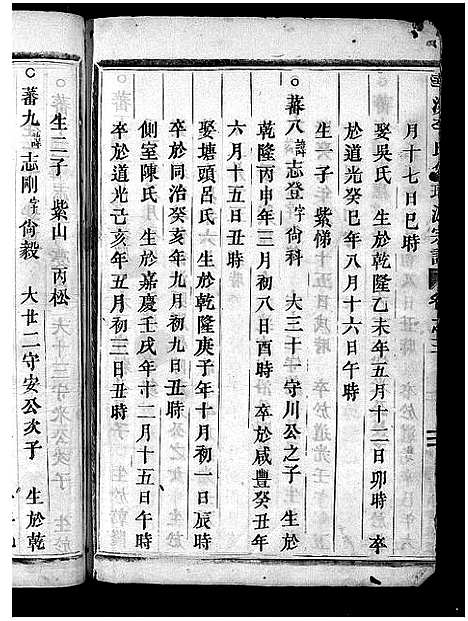 月十七日巳時
娶吳氏 生於乾隆乙未年五月十二日卯時 卒
於道光癸巳年八月十六日午時
生一子 紫梯
○蕃八諱志登字尙科 大三十一守川公之子 生於
乾隆丙申年三月初八日酉時 卒於咸豐癸丑年
六月十五日丑時
娶塘頭呂氏 生於乾隆庚子年十月初一日辰時
卒於同治癸亥年九月初九日丑時
側室陳氏 生於嘉慶壬戌年十二月十五日午時
卒於道光己亥年五月初三日丑時
生二子 紫山 丙松
○蕃九諱志剛字尙毅 大廿二守安公次子 生於乾